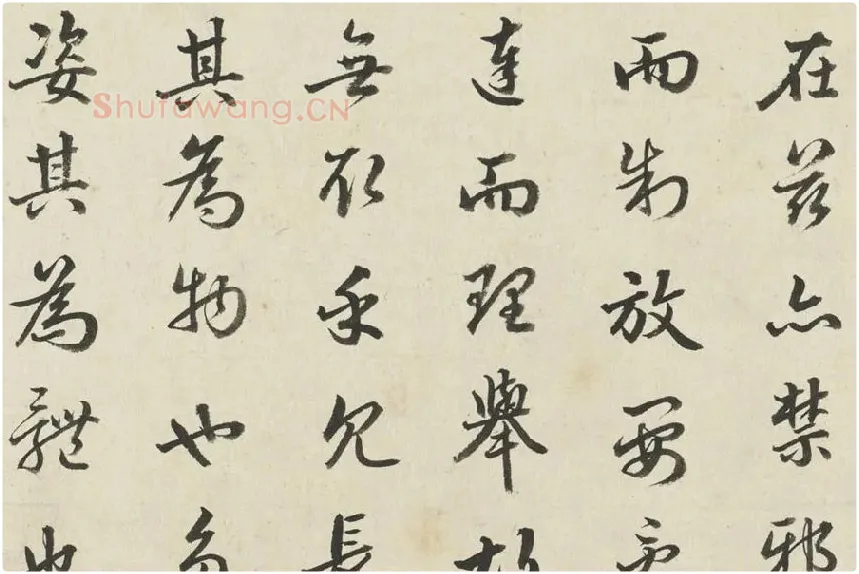 在茲亦禁邪
而制放要辭
達而理舉故
無取乎冗長
其為物也多
姿其為體也
Shufawang.CN